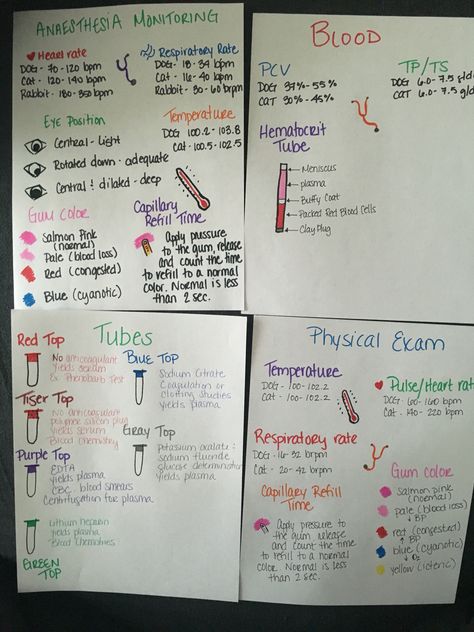 ANAESTHESIA MONITORING
Heart rate
DOG - 70-120 bpm
Cat - 120-140 bpm
Rabbit - 180-350 bpm
Respiratory Rate
DOG - 18-34 bpm
Cat - 16-40 bpm
Rabbit - 30-60 brpm
EYE POSITION
Central - light
Rotated down - adequate
Central & dilated - deep
Temperature
DOG 100.2 - 103.8
Cat - 100.5 - 102.5
GUM COLOR
Salmon Pink
(normal)
Pale (blood loss)
Red (congested)
Blue (cyanotic)
Capillary
Refill Time
Apply pressure
to the gum, release
and count the time
to refill to a normal
color. Normal is less
than 2 sec.
BLOOD
PCV
DOG 37% - 55%
CAT 30% - 45%
TP/TS
DOG 6.0 - 7.5 g/dl
CAT 6.0 - 7.5 g/dl
Hematocrit
Tube
Meniscus
plasma
Buffy Coat
Packed Red Blood Cells
Clay Plug
Tubes
Red Top
No anticoagulant
Yields serum
Ex Phenobarb Test
Blue Top
Sodium Citrate
Coagulation or
clotting studies
Yields plasma
Tiger Top
No anticoagulant
polymer silicon plug
Yields serum
Blood Chemistry
Gray Top
Potassium oxalate &
sodium fluoride
glucose determination
Yields plasma
Purple Top
EDTA
Yields plasma
CBC, blood smears
Centrifugation for plasma
Lithium heparin
Yields plasma
Blood Chemistries
GREEN
TOP
Physical Exam
Temperature
DOG - 100 - 102.2
Cat - 100 - 102.2
Pulse/Heart rate
DOG - 60 - 160 bpm
Cat - 140 - 220 bpm
Respiratory rate
DOG - 16-32 brpm
Cat - 20-42 brpm
Capillary Refill
Time
Apply pressure to
the gum, release
and count the time
to refill to a normal
color. Normal is less
than 2 sec.
Gum color
salmon pink
(normal)
pale (blood loss)
↓ BP
red (congested)
↑ BP
blue (cyanotic)
↓ O₂
yellow (icteric)